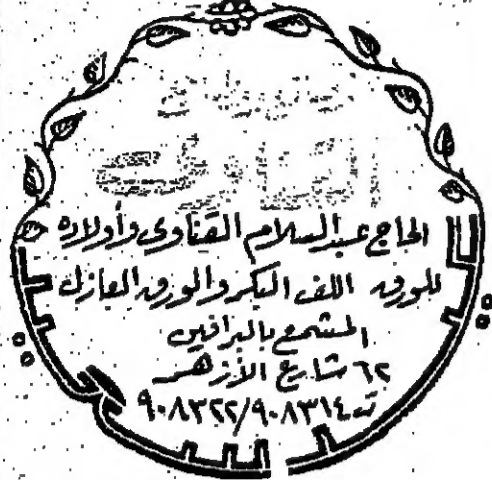 القناوى
الحاج عبدالسلام القناوى وأولاده
للورق اللف البكر والورق العازل
المشمع بالبرافين
٦٢ شارع الأزهر
ت ٩٠٨٣١٤/٩٠٨٣٢٢